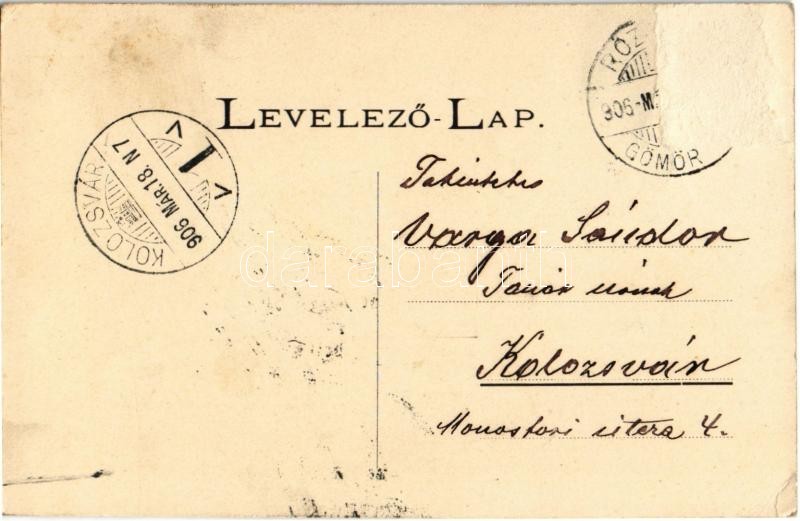 LEVELEZŐ-LAP.
KOLOZSVÁR
906 MÁR. 18. N7
1
V V
RÓZ
906-M
GÖMÖR
Tekintetes
Varga Sándor
Tanár úrnak
Kolozsvár
Monostori útcza 4.
darabanth